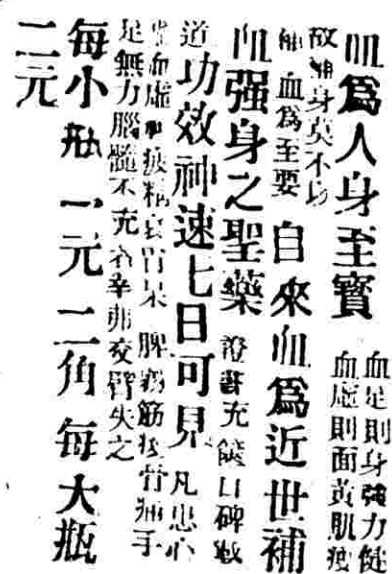 血爲人身至寳
血足則身強力健
血虛則面黃肌瘦
故補身莫不以
補血爲至要
自來血爲近世補
血强身之聖藥
證書充餘口碑載
道
功效神速七日可見
凡患心
血虛
疲精衰胃呆
脾弱筋
骨痛手
足無力腦髓不充
者幸弗交臂失之
每小瓶一元二角每大瓶
二元